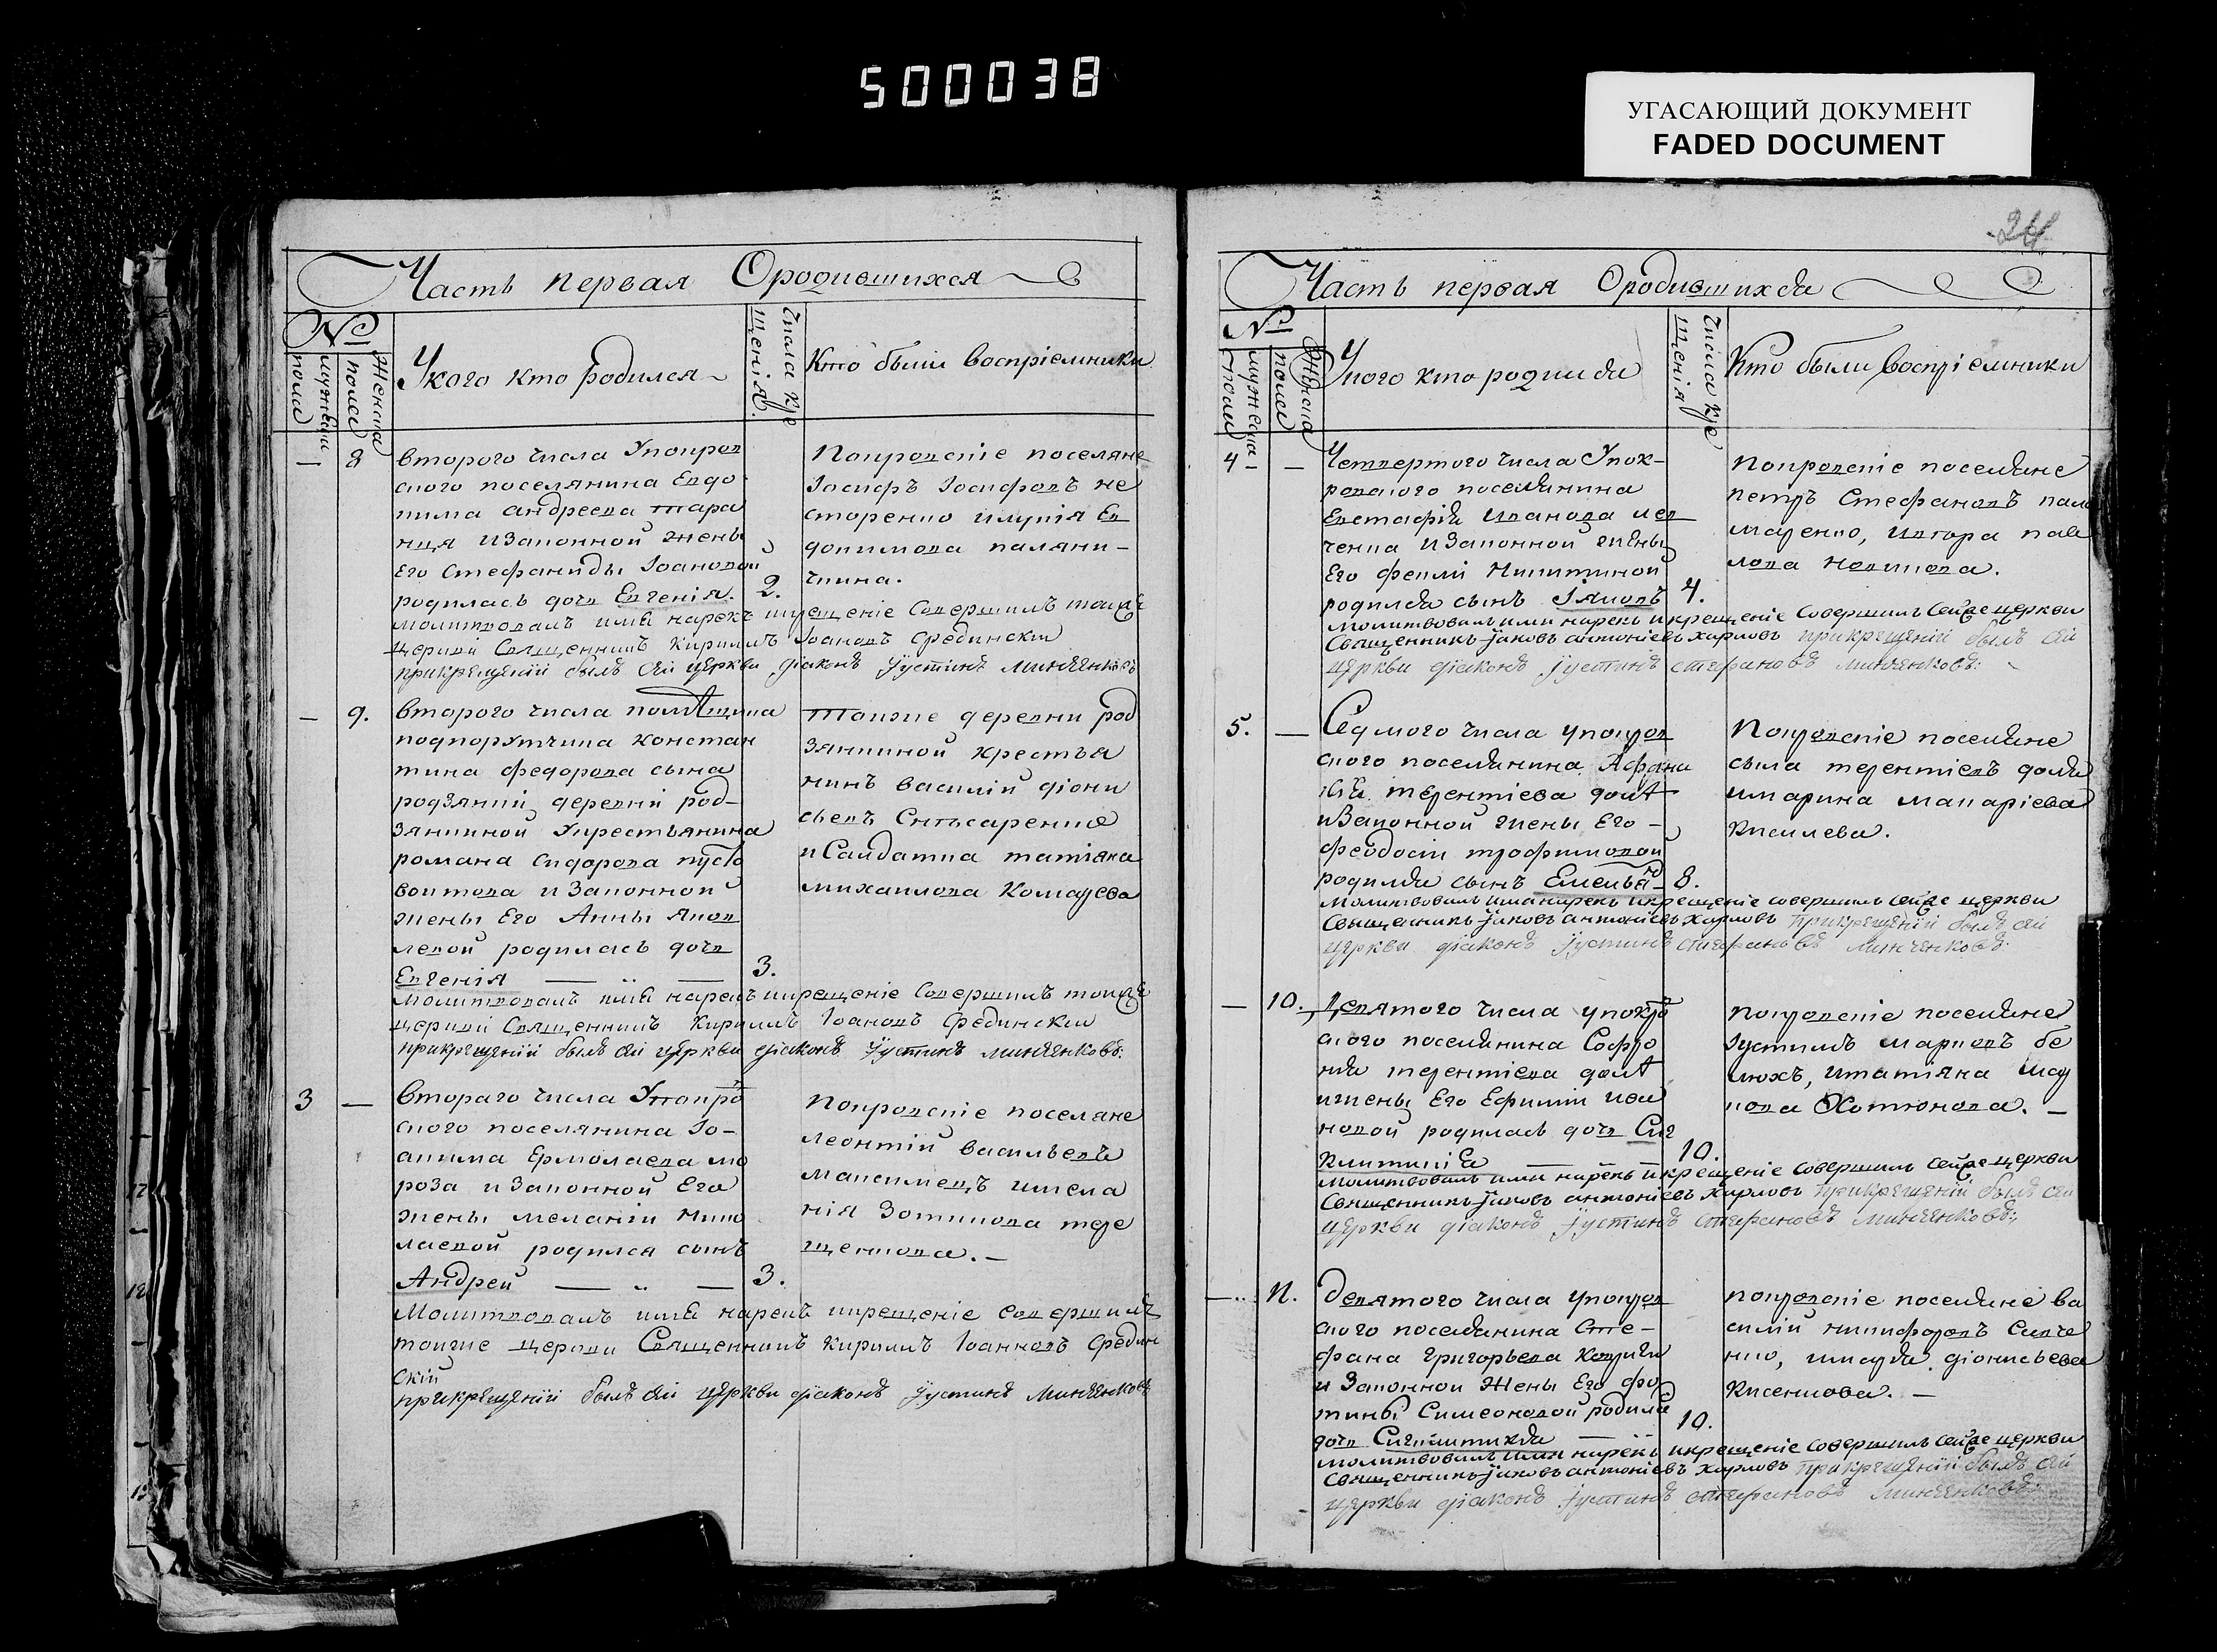 500038
УГАСАЮЩИЙ ДОКУМЕНТ
FADED DOCUMENT
24
Часть первая О родившихся
№
мужеска пола
женска пола
У кого кто родился
числа крещенія.
Кто были воспріемники
— 8
второго числа Упокров
ского поселянина Евдо
кима андреева тара
нця и законной жены
Его Стефаниды Іоановои
родилась дочь Евгенія. 2.
Покровские поселяне
Іосифъ Іосифовъ не
сторенко и луκія Ев
докимова паляни-
чкина.
молитвовалъ имя нарекъ и крещеніе Совершилъ тоиже
церкви Священникъ Кириллъ Іоановъ Срединскіи
при крещеніи былъ сей церкви діаконъ Іустинъ Минченковъ
— 9.
второго числа помѣщика
подпорутчика констан
тина федорова сына
родзянки деревни род-
зянкиной У крестьянина
романа сидорова пусто
воитова и законной
жены Его Анны Яков
левой родилась дочь
Евгенія — „ — 3.
Тоиже деревни род
зянкиной крестья
нинъ василій діони
сьевъ Снѣсаренко
и Салдатка татіяна
михаилова Комарева
молитвовалъ имя нарекъ и крещеніе Совершилъ тоиже
церкви Священникъ Кириллъ Іоановъ Срединскіи
при крещеніи былъ сей церкви діаконъ Іустинъ минченковъ:
3 —
втораго числа У покро
ского поселянина Іо-
акима Ермолаева мо
роза и законной Его
жены меланіи нико
лаевой родился сынъ
Андрей — „ — 3.
Покровские поселяне
леонтій васильевъ
максимецъ и мела
нія Зотикова тере
щенкова. —
Молитвовалъ имя нарекъ и крещеніе Совершилъ
тоиже церкви Священникъ кириллъ Іоанновъ Средин
скій
при крещеніи былъ сей церкви діаконъ Іустинъ Минченковъ
Часть первая О родившихся
№
мужеска пола
женска пола
У кого кто родился
числа крещенія
Кто были воспріемники
4 — —
Четвертого числа У пок-
ровского поселянина
Евстафія Иванова лев
ченка и законной жены
Его феклы Никитиной
родился сынъ Іяковъ 4.
покровские поселяне
петръ Стефановъ пала
маренко, и
лова Новикова.
молитвовалъ имя нарекъ и крещеніе Совершилъ сейже церкви
Священникъ Іаковъ антоніевъ Харловъ при крещеніи былъ сей
церкви діаконъ Іустинъ стефановъ минченковъ:
5. —
Седмого числа у покров
ского поселянина Афана
сія терентіева доля
и законной жены Его —
феодосіи трофимовой
родился сынъ Емельян 8.
Покровские поселяне
сыла терентіевъ доля
и марина макаріева
кисилева.
молитвовалъ имя нарекъ и крещеніе совершилъ сейже церкви
Священникъ Іаковъ антоніевъ Харловъ При крещеніи былъ сей
церкви діаконъ Іустинъ стефановъ минченковъ:
— 10.
Девятого числа у покро
ского поселянина Софро
нія терентіева доля
и жены Его Ефиміи ива
новой родилась дочь Сиг
клитикія — „ — 10.
покровские поселяне
Іустимъ марковъ бе
люхъ, и татіяна мар
кова Хотюнова. —
молитвовалъ имя нарекъ и крещеніе совершилъ сейже церкви
Священникъ Іаковъ антоніевъ Харловъ при крещеніи былъ сей
церкви діаконъ Іустинъ стефановъ минченковъ:
— 11.
Девятого числа у покров
ского поселянина Сте-
фана григорьева
и законнои Жены Его фо
тины Симеоновой родилась
дочь Сигклитикія — 10.
покровские поселяне ва
силій никифоровъ Савче
нко, и марфа діонисьева
кисенкова. —
молитвовалъ имя нарекъ и крещеніе совершилъ сейже церкви
Священникъ Іаковъ антоніевъ Харловъ при крещеніи былъ сей
церкви діаконъ Іустинъ стефановъ минченковъ